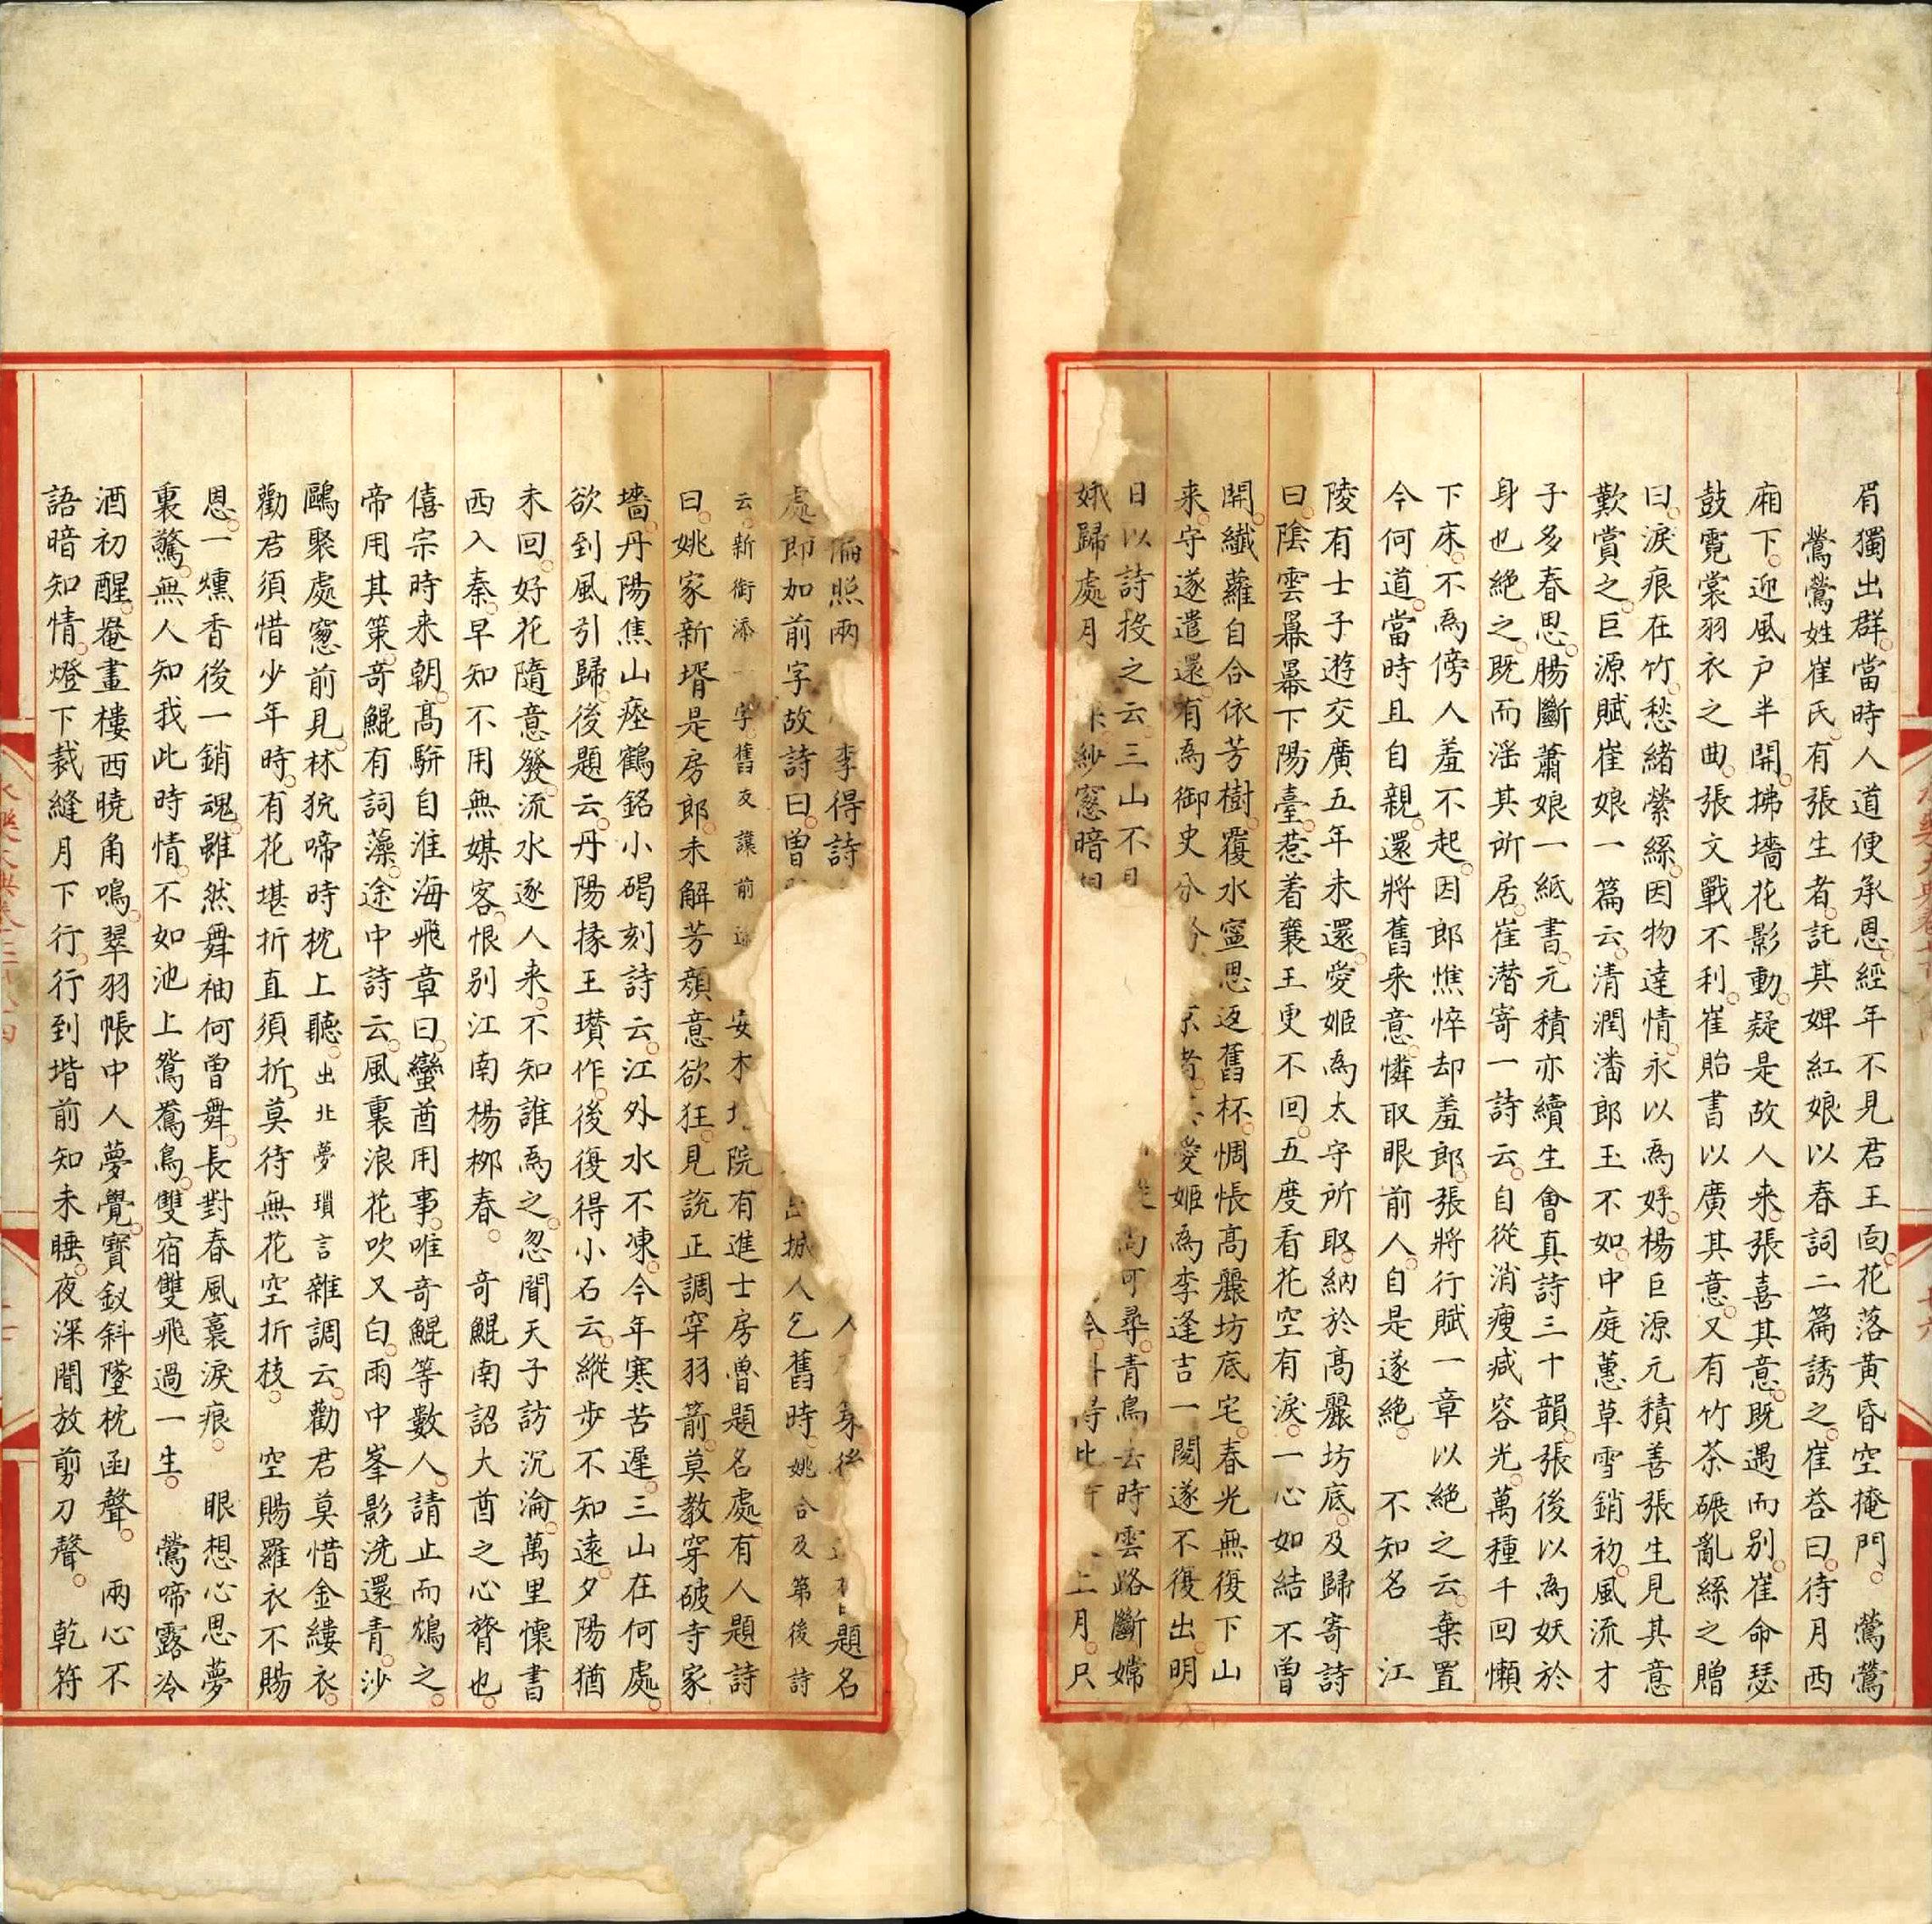 眉獨出群當時人道便承恩經年不見君王面花落黃昏空掩門 鶯鶯
鶯鶯姓崔氏有張生者託其婢紅娘以春詞二篇誘之崔荅曰待月西
廂下迎風户半開拂墻花影動疑是故人来張喜其意既遇而别崔命瑟
鼓霓裳羽衣之曲張文戰不利崔貽書以廣其意又有竹茶碾亂絲之贈
曰淚痕在竹愁緒縈絲因物達情永以為好楊巨源元積善張生見其意
歎賞之巨源賦崔娘一篇云清潤潘郎玉不如中庭蕙草雪銷初風流才
子多春思腸斷蕭娘一紙書元積亦續生會真詩三十韻張後以為妖於
身也絶之既而滛其所居崔潜寄一詩云自從消瘦减容光萬種千回懶
下床不為傍人羞不起因郎憔悴却羞郎張將行賦一章以絶之云棄置
今何道當時且自親還將舊来意憐取眼前人自是遂絶 不知名 江
陵有士子遊交廣五年未還愛姬為太守所取納於髙麗坊底及歸寄詩
曰陰雲羃羃下陽臺惹着襄王更不回五度看花空有淚一心如結不曽
開纎蘿自合依芳樹覆水寧思返舊杯惆悵髙麗坊底宅春光無復下山
来守遂遣還有為御史分 京者 愛姬為李逢吉一閱遂不復出明
日以詩投之云三山不 尚可尋青鳥去時雲路斷嫦
娥歸處月 紗窓暗 今 得比 上月只
偏照兩 李得詩 人 身後 題名
處即如前字故詩曰曽 出城人乞舊時姚合及第後詩
云新銜添一字舊友讓前 安木 院有進士房魯題名處有人題詩
曰姚家新壻是房郎未解芳顔意欲狂見説正調穿羽箭莫教穿破寺家
墻丹陽焦山瘞鶴銘小碣刻詩云江外水不凍今年寒苦遲三山在何處
欲到風引歸後題云丹陽掾王瓉作後復得小石云縱步不知遠夕陽猶
未回好花隨意發流水逐人来不知誰為之忽聞天子訪沉淪萬里懷書
西入秦早知不用無媒客恨别江南楊栁春 竒鯤南詔大酋之心膂也
僖宗時来朝髙駢自淮海飛章曰蠻酋用事唯竒鯤等數人請止而鴆之
帝用其策竒鯤有詞藻途中詩云風裏浪花吹又白雨中峯影洗還青沙
鷗聚處窓前見林狖啼時枕上聽出北夢瑣言雜調云勸君莫惜金縷衣
勸君須惜少年時有花堪折直須折莫待無花空折枝 空賜羅衣不賜
恩一燻香後一銷魂雖然舞袖何曽舞長對春風裛淚痕 眼想心思夢
裏驚無人知我此時情不如池上鴛鴦鳥雙宿雙飛過一生 鶯啼露冷
酒初醒罨畫樓西曉角鳴翠羽帳中人夢覺寳釵斜墜枕函聲 兩心不
語暗知情燈下裁縫月下行行到堦前知未睡夜深聞放剪刀聲 乾符